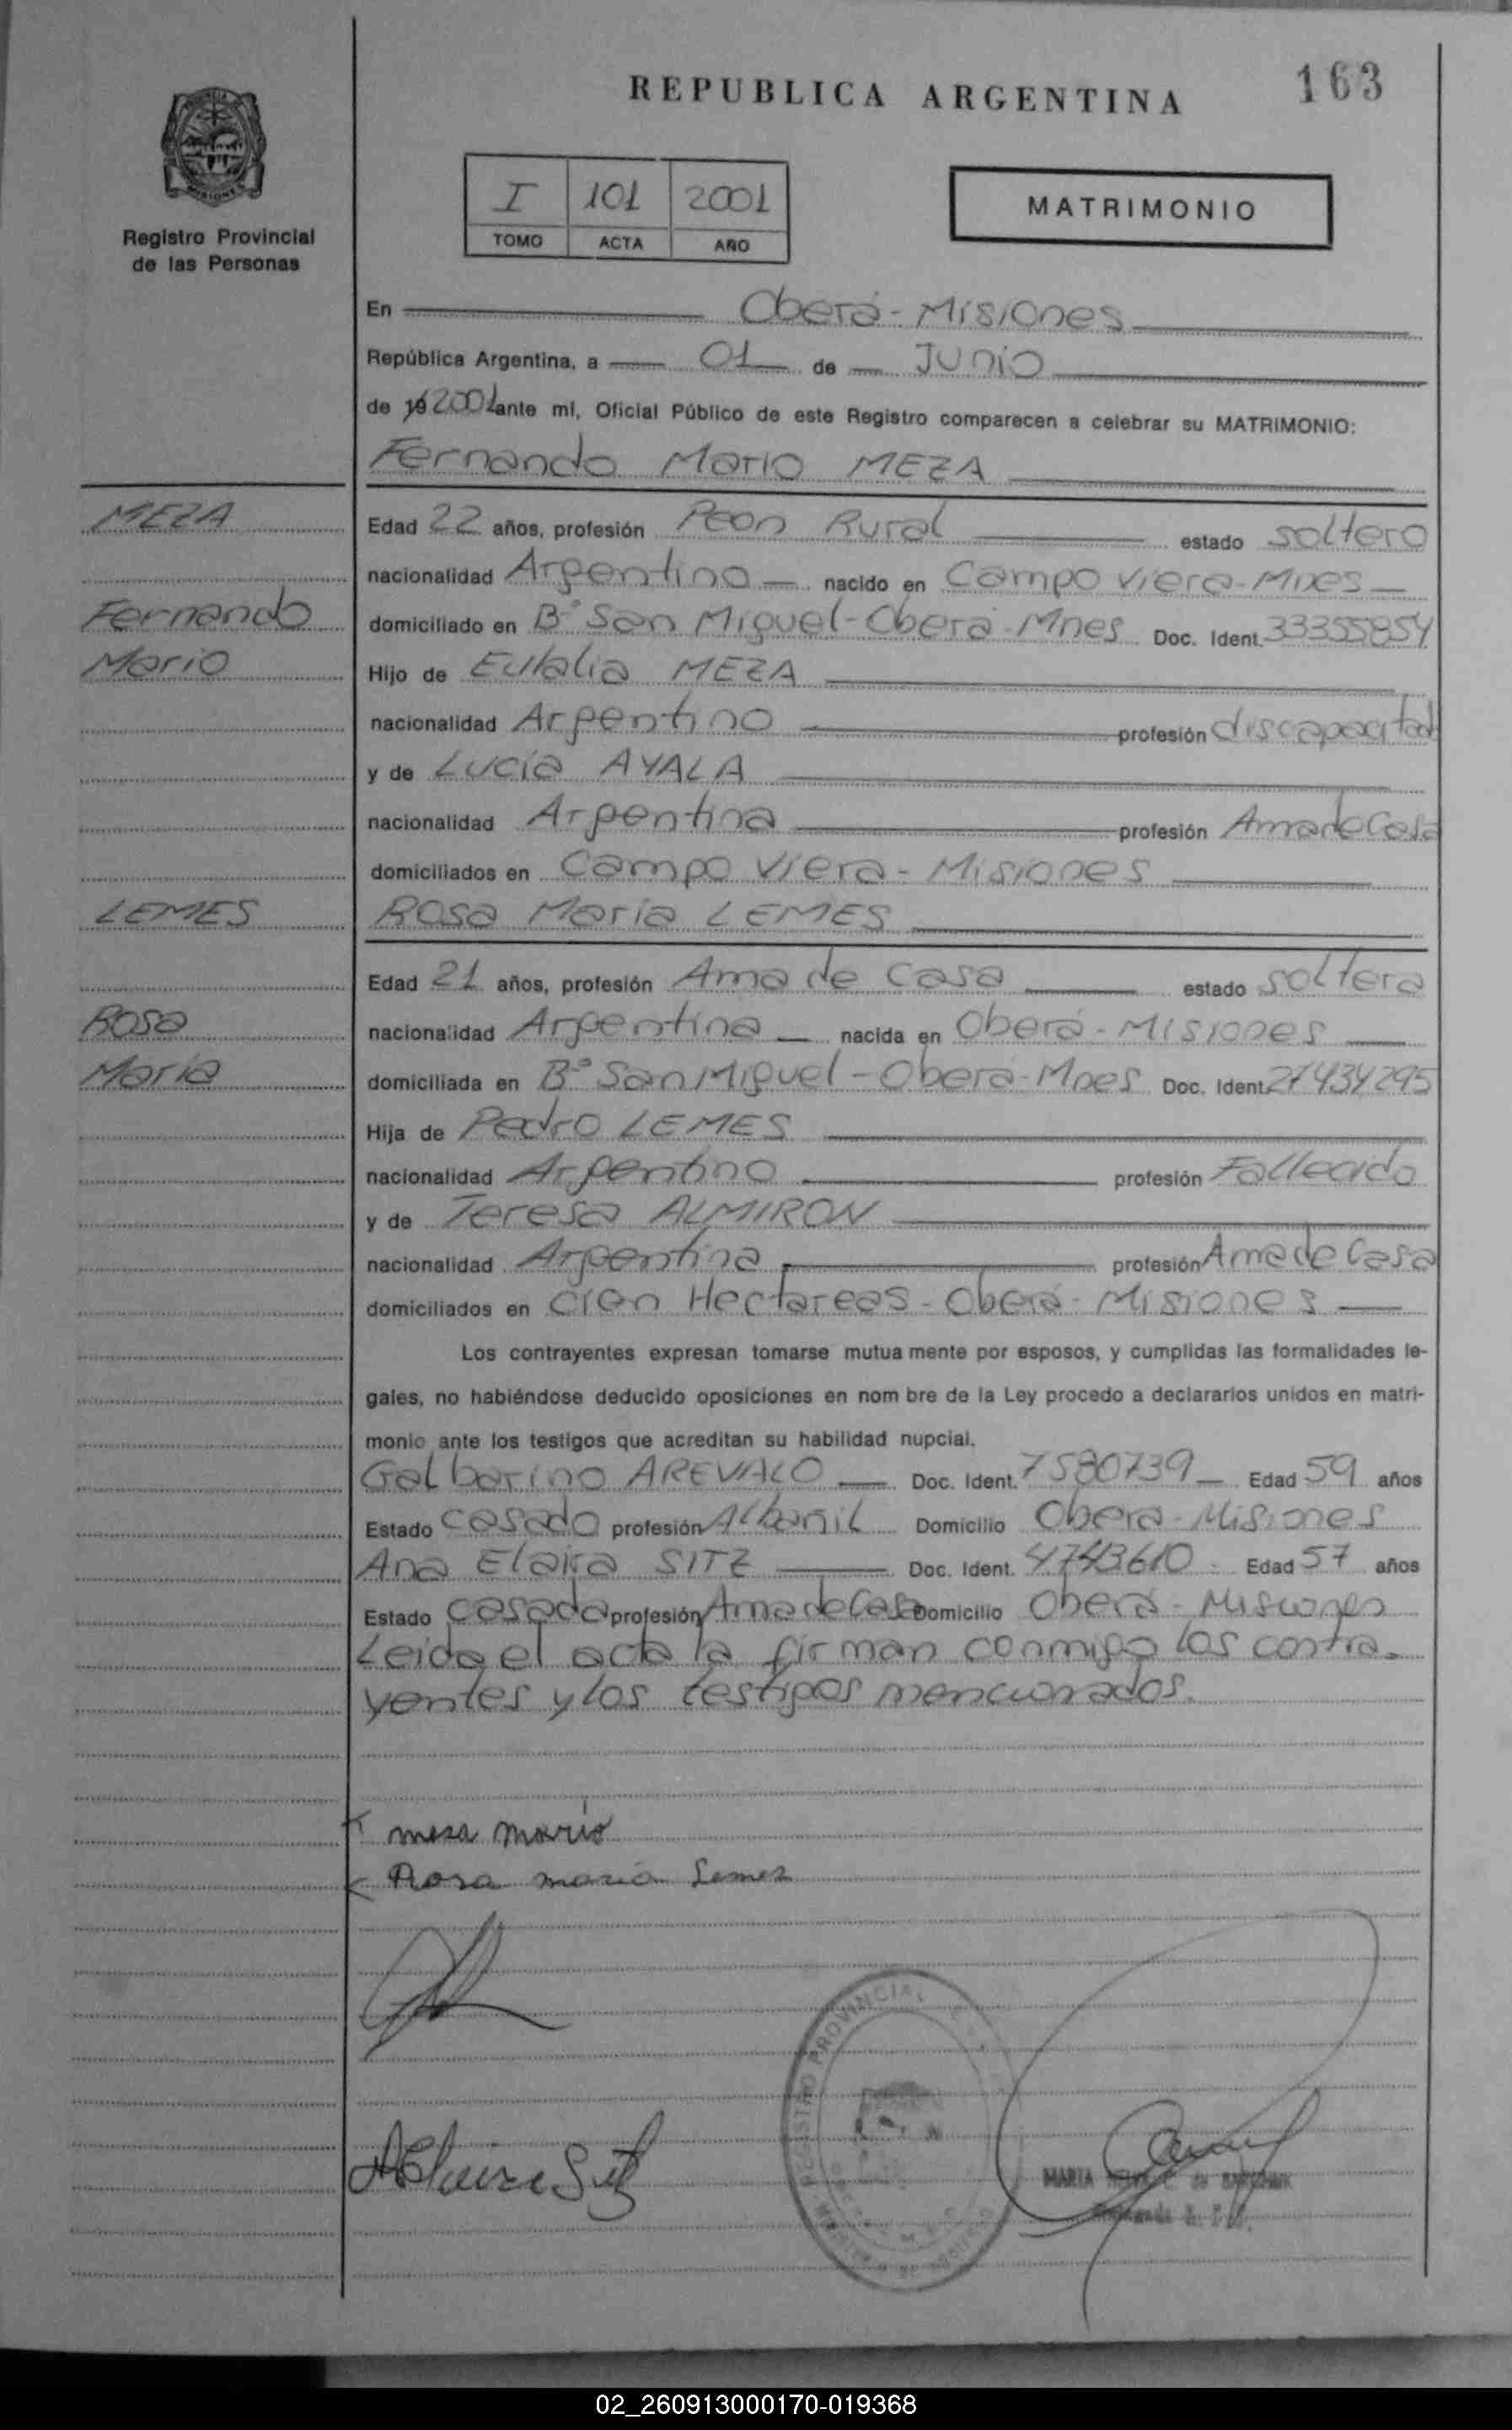 REPUBLICA ARGENTINA
163
Registro Provincial
de las Personas
I 101 2001
TOMO ACTA AÑO
MATRIMONIO
En Oberá - Misiones
República Argentina, a 01 de Junio
de 19 2001 ante mi, Oficial Público de este Registro comparecen a celebrar su MATRIMONIO:
Fernando Mario MEZA
MEZA
Edad 22 años, profesión Peon Rural estado soltero
nacionalidad Argentino nacido en Campo Viera-Mnes
Fernando
domiciliado en Bº San Miguel-Oberá-Mnes Doc. Ident. 33355854
Mario
Hijo de Eulalia MEZA
nacionalidad Argentino profesión discapacitad
y de Lucía AYALA
nacionalidad Argentina profesión Ama de Casa
domiciliados en Campo Viera - Misiones
LEMES
Rosa María LEMES
Edad 21 años, profesión Ama de Casa estado soltera
Rosa
nacionalidad Argentina nacida en Oberá - Misiones
María
domiciliada en Bº San Miguel - Oberá-Mnes Doc. Ident. 27434295
Hija de Pedro LEMES
nacionalidad Argentino profesión Fallecido
y de Teresa ALMIRON
nacionalidad Argentina profesión Ama de Casa
domiciliados en Cien Hectareas - Oberá - Misiones
Los contrayentes expresan tomarse mutua mente por esposos, y cumplidas las formalidades le-
gales, no habiéndose deducido oposiciones en nom bre de la Ley procedo a declararlos unidos en matri-
monio ante los testigos que acreditan su habilidad nupcial.
Galbarino AREVALO Doc. Ident. 7580739 Edad 59 años
Estado casado profesión Albañil Domicilio Oberá - Misiones
Ana Elaira SITZ Doc. Ident. 4743610 Edad 57 años
Estado casada profesión Ama de Casa Domicilio Oberá - Misiones
Leida el acta la firman conmigo los contra-
yentes y los testigos mencionados.
mesa mario
Rosa maria Lemes
REGISTRO PROVINCIAL
MARTA
02_260913000170-019368